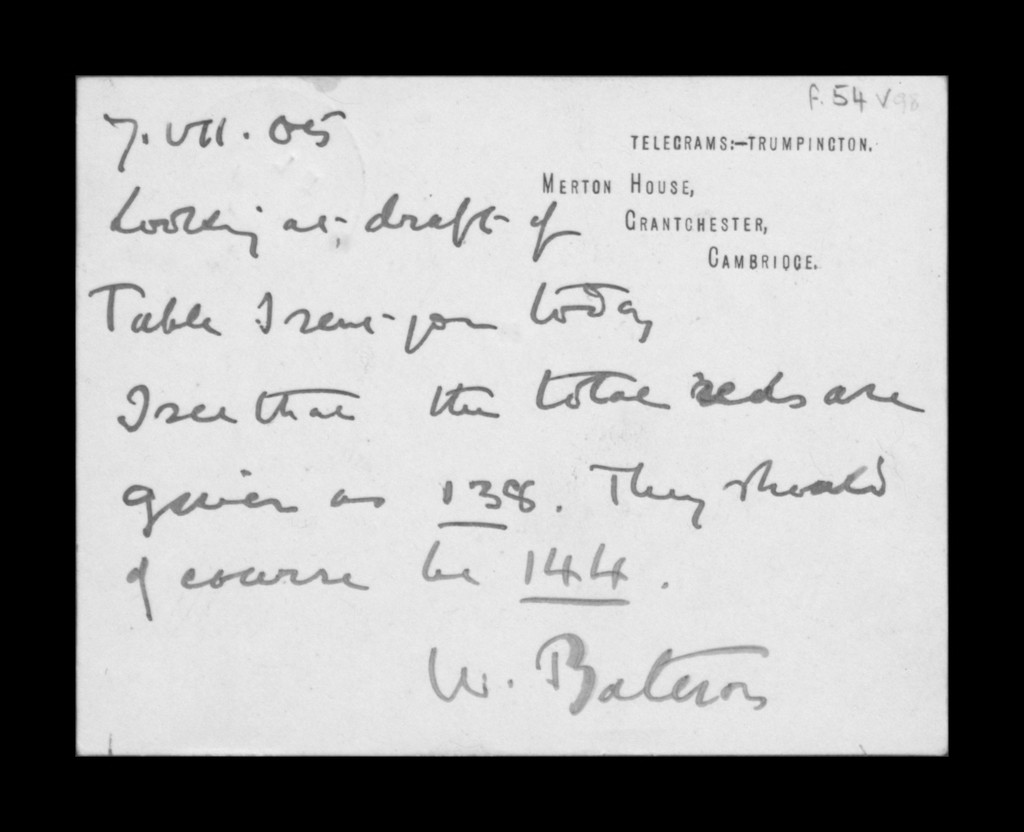 f. 54 v 98
7. VII. 05
TELEGRAMS:—TRUMPINGTON.
MERTON HOUSE,
GRANTCHESTER,
CAMBRIDGE.
Looking at draft of
Table I sent you today
I see that the total reds are
given as 138. They should
of course be 144.
W. Bateson